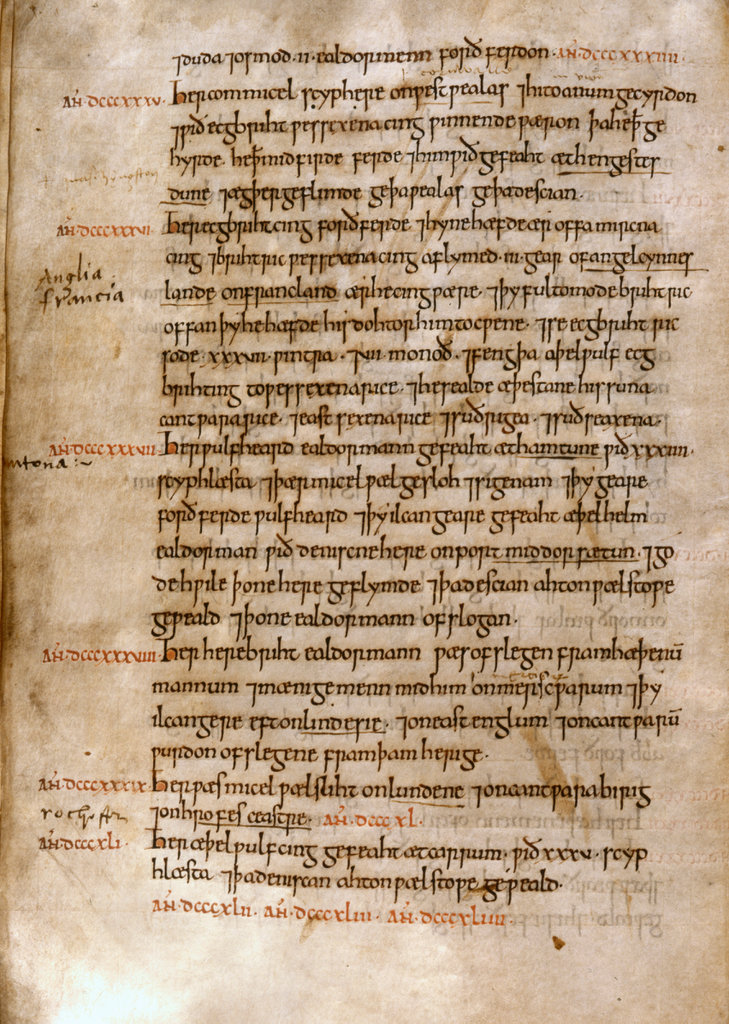 ⁊ duda ⁊ osmod .ii. ealdormenn forð ferdon. AN. dcccxxxiiii.
AN. dcccxxxv. Her com micel scyphere on westwealas ⁊ hi to anum gecyrdon
⁊ wið ecgbriht wessexena cing winnende wæron þa he þæt ge
hyrde. he þær mid firde ferde ⁊ him wið gefeaht æt hengestes
dune ⁊ ægþer geflimde ge þa wealas ge þa deniscian.
AN. dcccxxxvi. Her ecgbriht cing forð ferde ⁊ hyne hæfde ær offa mircna
cing ⁊ brihtric wessexena cing aflymed .iii. gear of angelcynnes
Anglia
francia
lande on francland ær he cing wære. ⁊ þy fultomode brihtric
offan þy he hæfde his dohtor him to cwene. ⁊ se ecgbriht ric
sode .xxxvii. wintra. ⁊ vii. monoð. ⁊ feng þa aþelwulf ecg
brihting to wessexena rice. ⁊ he sealde æþestane his suna
cantwara rice. ⁊ east sexena rice ⁊ suðrigea. ⁊ suð seaxena.
AN. dcccxxxvii. Her wulfheard ealdormann gefeaht æt hamtune wið xxxiii.
scyphlæsta ⁊ þær micel wæl gesloh ⁊ sige nam ⁊ þy geare
forð ferde wulfheard ⁊ þy ilcan geare gefeaht æþelhelm
ealdorman wið denisc ne here on port mid dorsætun. ⁊ go
de hwile þone here geflymde ⁊ þa descian ahton wælstope
geweald ⁊ þone ealdormann ofslogan.
AN. dcccxxxviii. Her herebriht ealdormann wæs ofslegen fram hæþenū
mannum ⁊ mænige menn mid him on merscwarum ⁊ þy
ilcan gere eft on lindesse. ⁊ on eastenglum ⁊ on cantwarū
wurdon ofslegene fram þam herige.
AN. dcccxxxix. Her wæs micel wælsliht on lundene ⁊ on cantwarabirig
rochestr
⁊ on hrofesceastre. AN. dcccxl.
AN. dcccxli. Her æþelwulf cing gefeaht æt carrium. wið xxxv. scyp
hlæsta ⁊ þa deniscan ahton wælstowe geweald.
AN. dcccxlii. AN. dcccxliii. AN. dcccxliiii.